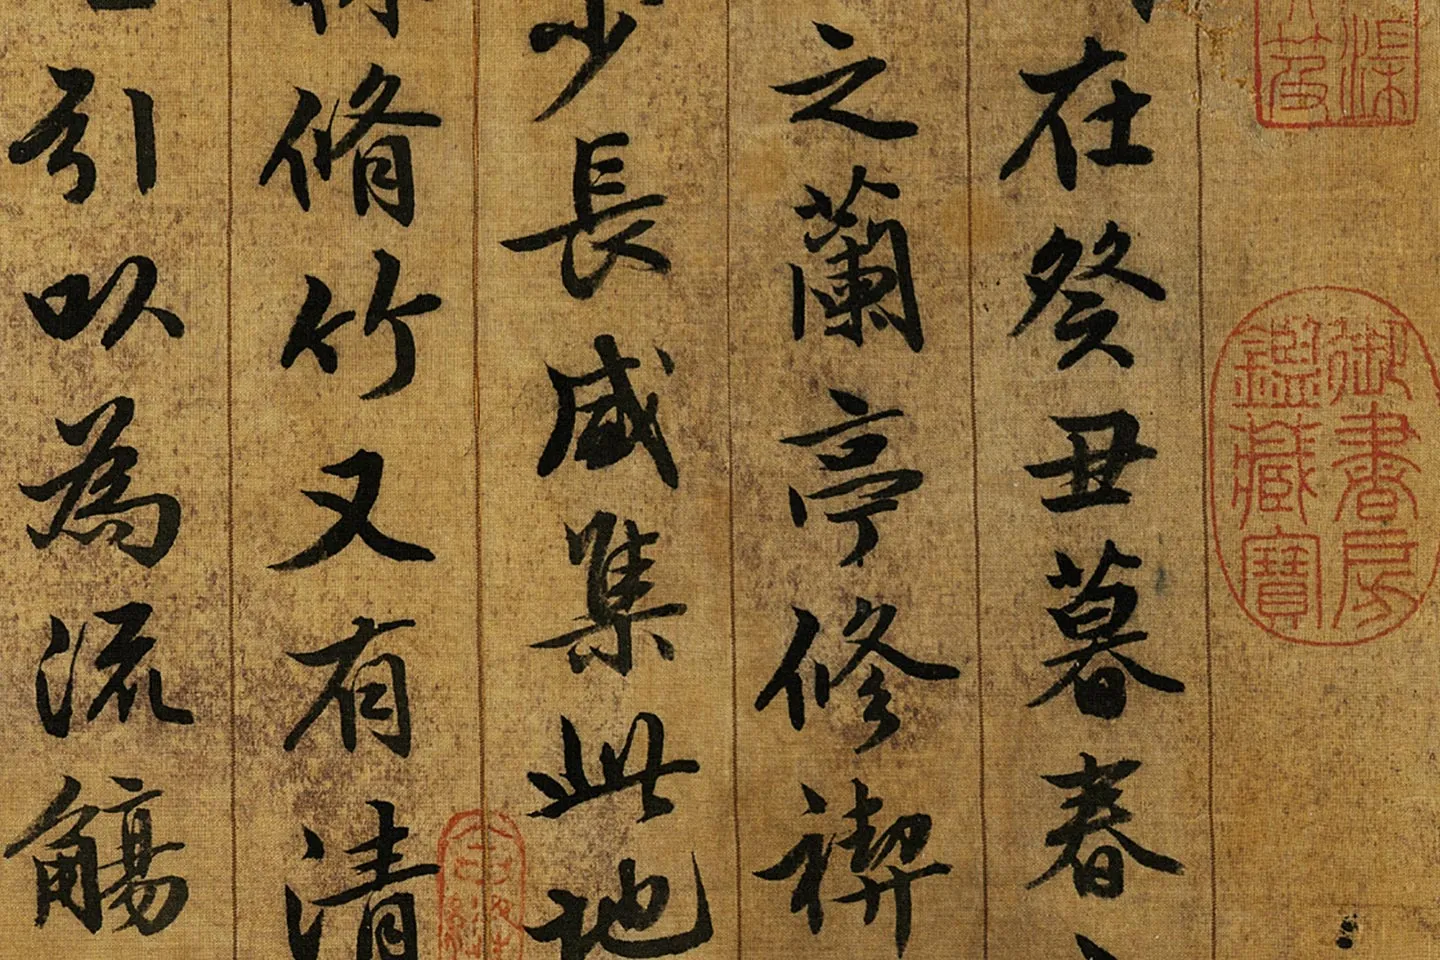 在癸丑暮春
之蘭亭修禊
少長咸集此地
脩竹又有清
引以為流觴
御書房
鑑藏寶